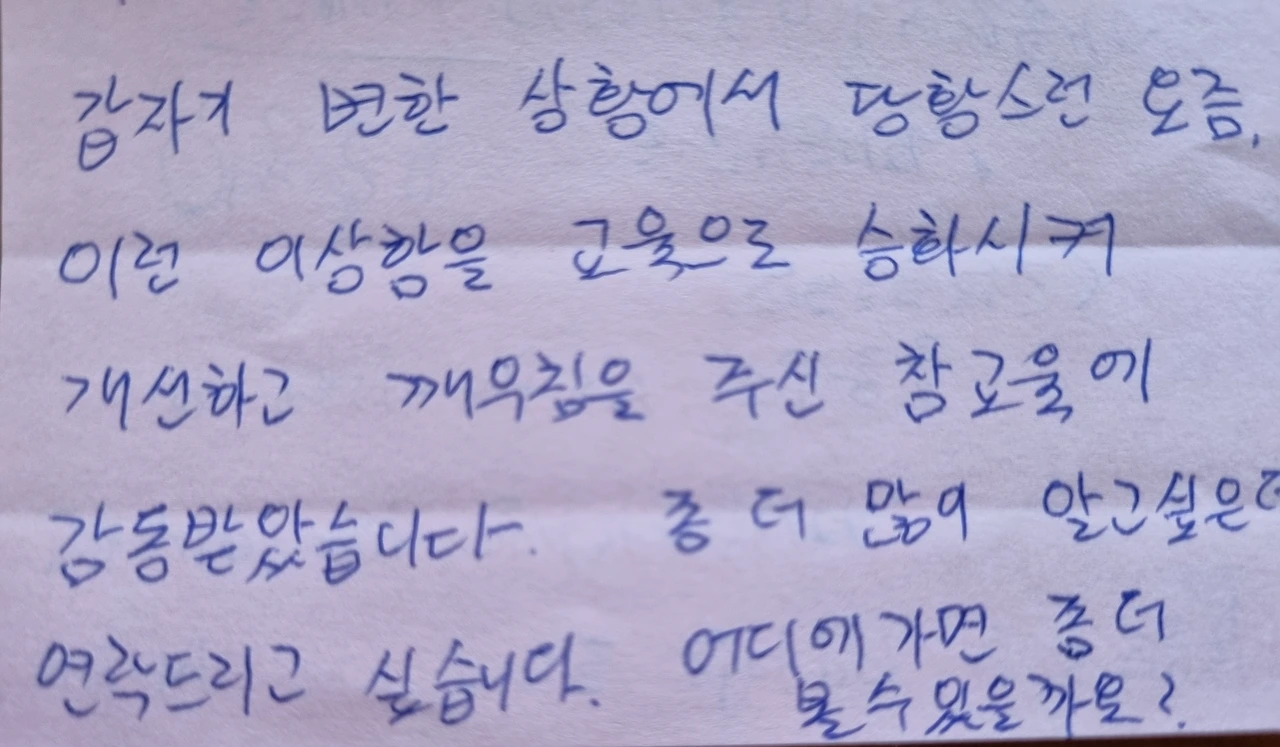 갑자기 변한 상황에서 당황스런 요즘,
이런 이상함을 교육으로 승화시켜
개선하고 깨우침을 주신 참교육에
감동받았습니다. 좀 더 많이 알고싶은데
연락드리고 싶습니다. 어디에가면 좀 더
볼 수 있을까요?